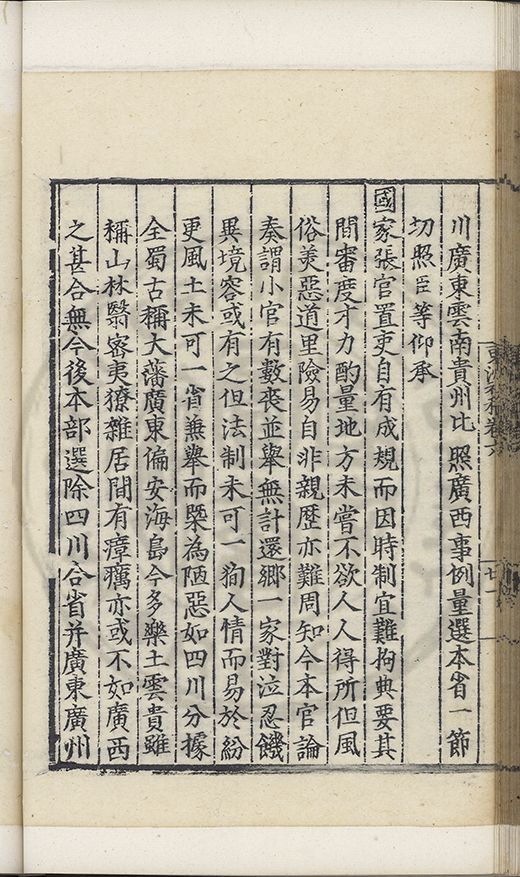 川廣東雲南貴州比照廣西事例量選本省一節
切照臣等仰承
國家張官置吏自有成規而因時制宜難拘典要其
間審度才力酌量地方未嘗不欲人人得所但風
俗美惡道里險易自非親歷亦難周知今本官論
奏謂小官有數喪並舉無計還鄉一家對泣忍饑
異境容或有之但法制未可一狥人情而易於紛
更風土未可一省兼舉而槩為陋惡如四川分據
全蜀古稱大藩廣東偏安海島今多樂土雲貴雖
稱山林翳密夷獠雜居間有瘴癘亦或不如廣西
之甚合無今後本部選除四川合省并廣東廣州